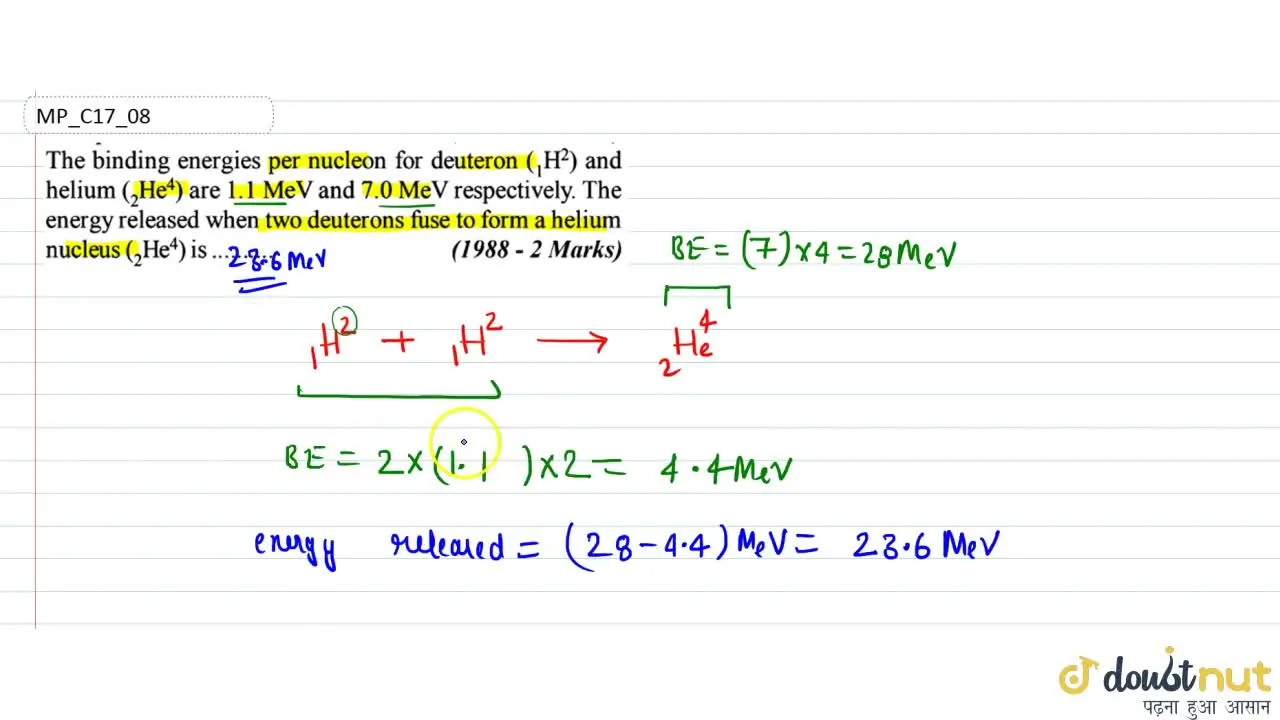 MP_C17_08
The binding energies per nucleon for deuteron (₁H²) and
helium (₂He⁴) are 1.1 MeV and 7.0 MeV respectively. The
energy released when two deuterons fuse to form a helium
nucleus (₂He⁴) is .......... (1988 - 2 Marks)
23.6 MeV
BE = (7) × 4 = 28 MeV
₁H² + ₁H² → ₂He⁴
BE = 2 × (1.1 ) × 2 = 4.4 MeV
energy released = (28 - 4.4) MeV = 23.6 MeV
doubtnut
पढ़ना हुआ आसान